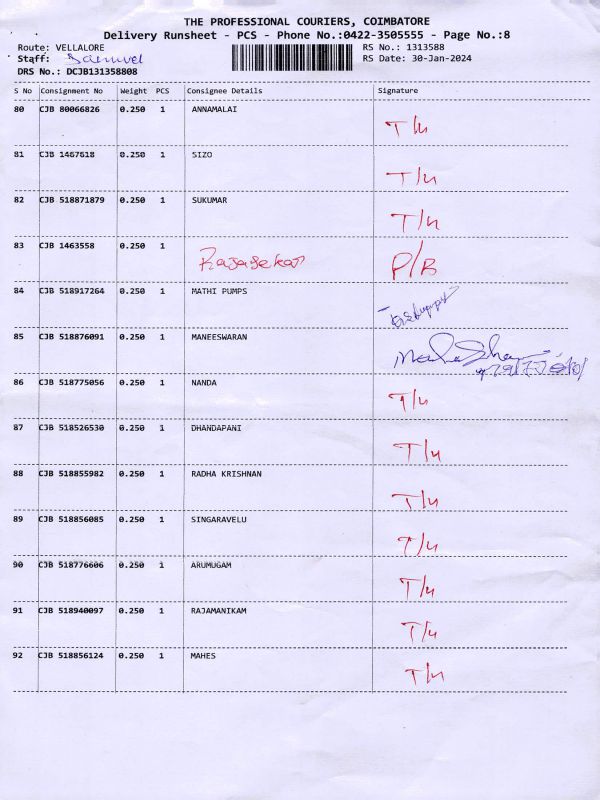 THE PROFESSIONAL COURIERS, COIMBATORE
Delivery Runsheet - PCS - Phone No.:0422-3505555 - Page No.:8
Route: VELLALORE RS No.: 1313588
Staff: RS Date: 30-Jan-2024
DRS No.: DCJB131358808
S No Consignment No Weight PCS Consignee Details Signature
80 CJB 80066826 0.250 1 ANNAMALAI T/4
81 CJB 1467618 0.250 1 SIZO T/4
82 CJB 518871879 0.250 1 SUKUMAR T/4
83 CJB 1463558 0.250 1 Rajasekar P/B
84 CJB 518917264 0.250 1 MATHI PUMPS
85 CJB 518876091 0.250 1 MANEESWARAN
86 CJB 518775056 0.250 1 NANDA T/4
87 CJB 518526530 0.250 1 DHANDAPANI T/4
88 CJB 518855982 0.250 1 RADHA KRISHNAN T/4
89 CJB 518856085 0.250 1 SINGARAVELU T/4
90 CJB 518776606 0.250 1 ARUMUGAM T/4
91 CJB 518940097 0.250 1 RAJAMANIKAM T/4
92 CJB 518856124 0.250 1 MAHES T/4